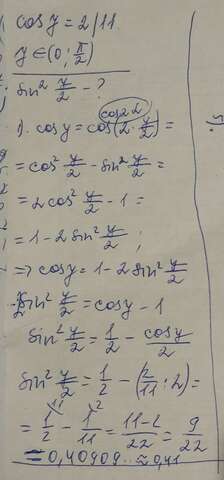 cos y = 2/11.
y ∈ (0; π/2)
sin² y/2 - ?
cos 2α
1). cos y = cos(2 · y/2) =
= cos² y/2 - sin² y/2 =
= 2cos² y/2 - 1 =
= 1 - 2 sin² y/2 ;
=> cos y = 1 - 2 sin² y/2
-2sin² y/2 = cos y - 1
sin² y/2 = 1/2 - cos y/2
sin² y/2 = 1/2 - (2/11 : 2) =
= 1/2 - 1/11 = 11-2/22 = 9/22
= 0,40909... ≈ 0,41